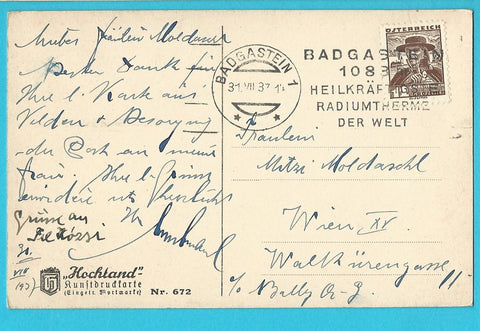 Liebes Fräulein Moldaschl
Besten Dank für
Ihre l. Karte aus
Velden & Besorgung
der Post an meine
Frau. Ihre l. Grüsse
erwidere ich herzlichst
Ihr
Grüsse an
30.
VIII
1937
"Hochland"
Kunstdruckkarte
(Eingetr. Wortmarke)
Nr. 672
BADGASTEIN 1
31.VIII.37
BADGASTEIN
1083
HEILKRÄFT
RADIUMTHERME
DER WELT
ÖSTERREICH
Fräulein
Mitzi Moldaschl
Wien XV.
Walkürengasse 11
c/o Bally A-G.